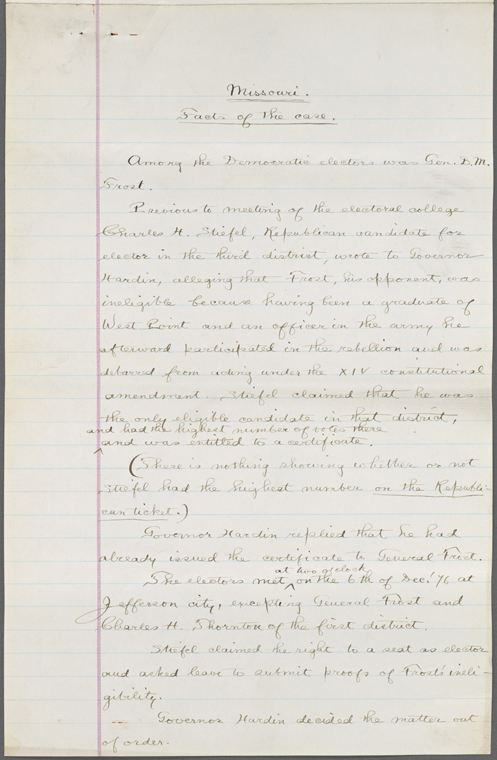 Missouri.
Facts of the case.
Among the Democratic electors was Gen. D. M.
Frost.
Previous to meeting of the electoral college
Charles H. Stiefel, Republican candidate for
elector in the third district, wrote to Governor
Hardin, alleging that Frost, his opponent, was
ineligible because having been a graduate of
West Point and an officer in the army he
afterward participated in the rebellion and was
debarred from acting under the XIV constitutional
amendment. Stiefel claimed that he was
the only eligible candidate in that district,
and had the highest number of votes there
and was entitled to a certificate.
(There is nothing showing whether or not
Stiefel had the highest number on the Republi-
can ticket.)
Governor Hardin replied that he had
already issued the certificate to General Frost.
at two o'clock
The electors met on the 6th of Dec. '76 at
Jefferson city, excepting General Frost and
Charles H. Thornton of the first district.
Stiefel claimed the right to a seat as elector
and asked leave to submit proofs of Frost's ineli-
gibility.
Governor Hardin decided the matter out
of order.